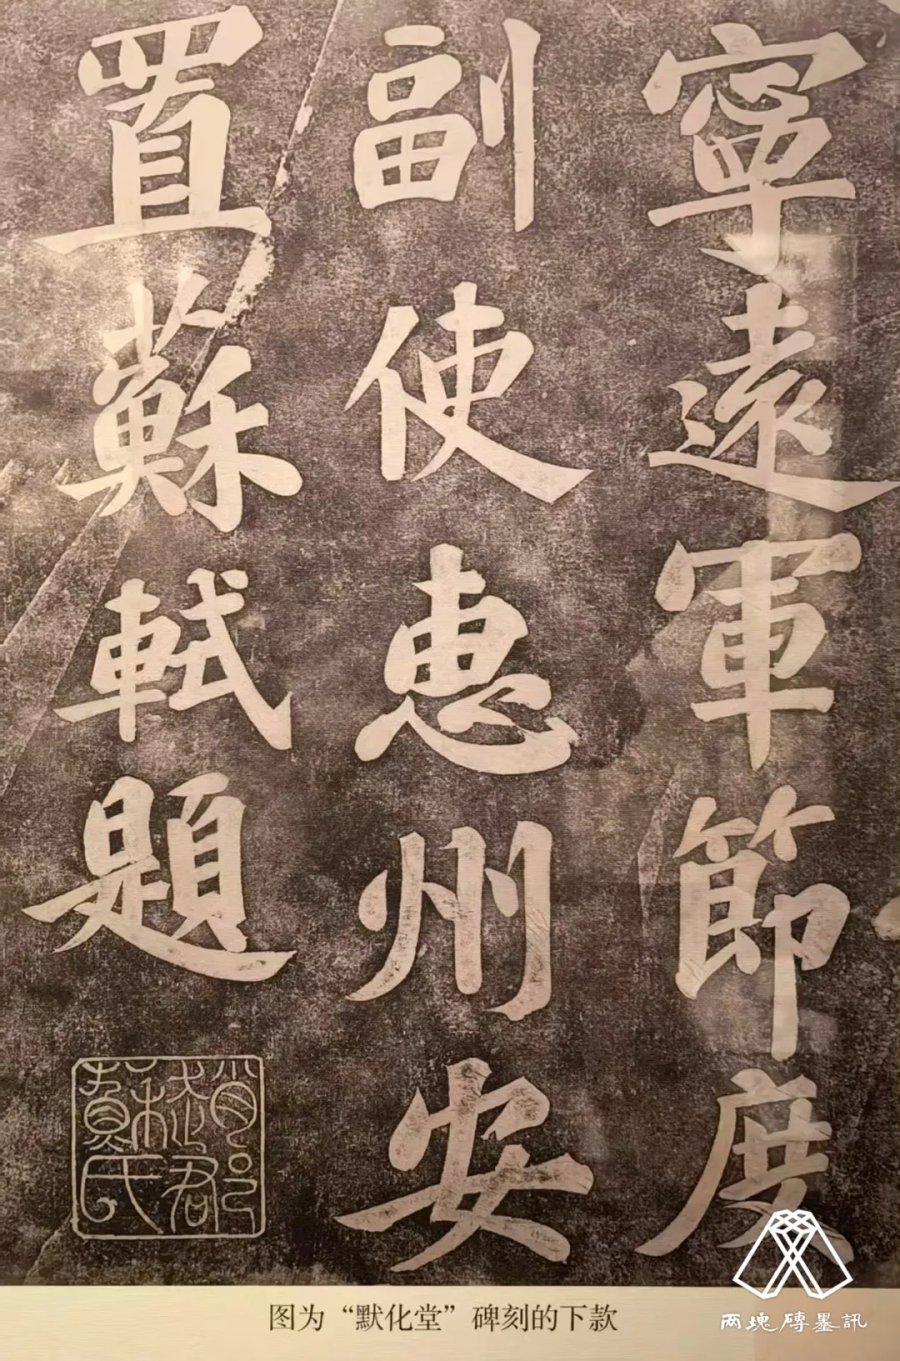 寧遠軍節度
副使惠州安
置蘇軾題
趙郡蘇氏
图为“默化堂”碑刻的下款
两塊磚墨訊